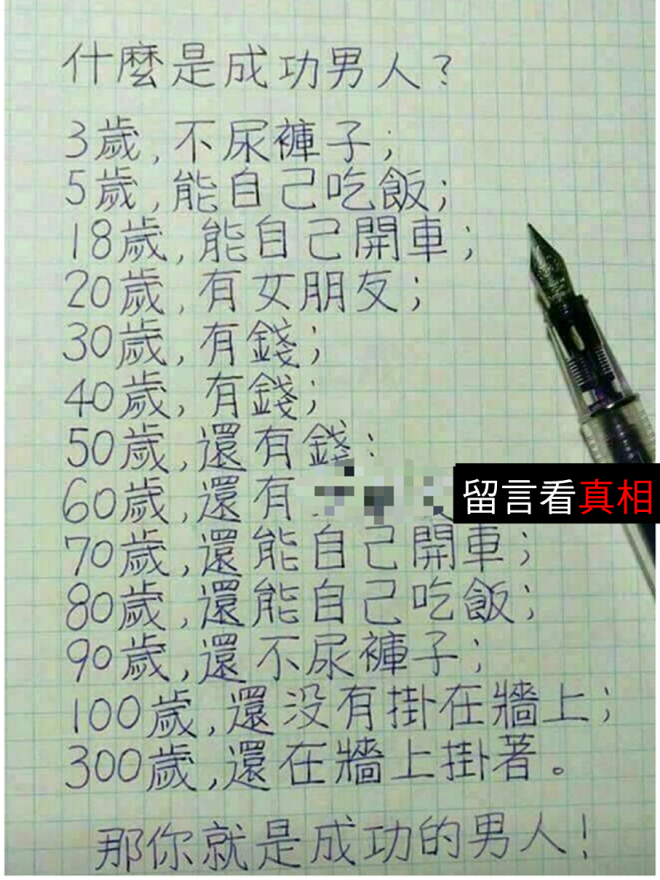 什麼是成功男人?
3歲,不尿褲子;
5歲,能自己吃飯;
18歲,能自己開車;
20歲,有女朋友;
30歲,有錢;
40歲,有錢;
50歲,還有錢:
60歲,還有
留言看真相
70歲,還能自己開車;
80歲,還能自己吃飯;
90歲,還不尿褲子;
100歲,還没有掛在牆上;
300歲,還在牆上掛著。
那你就是成功的男人!